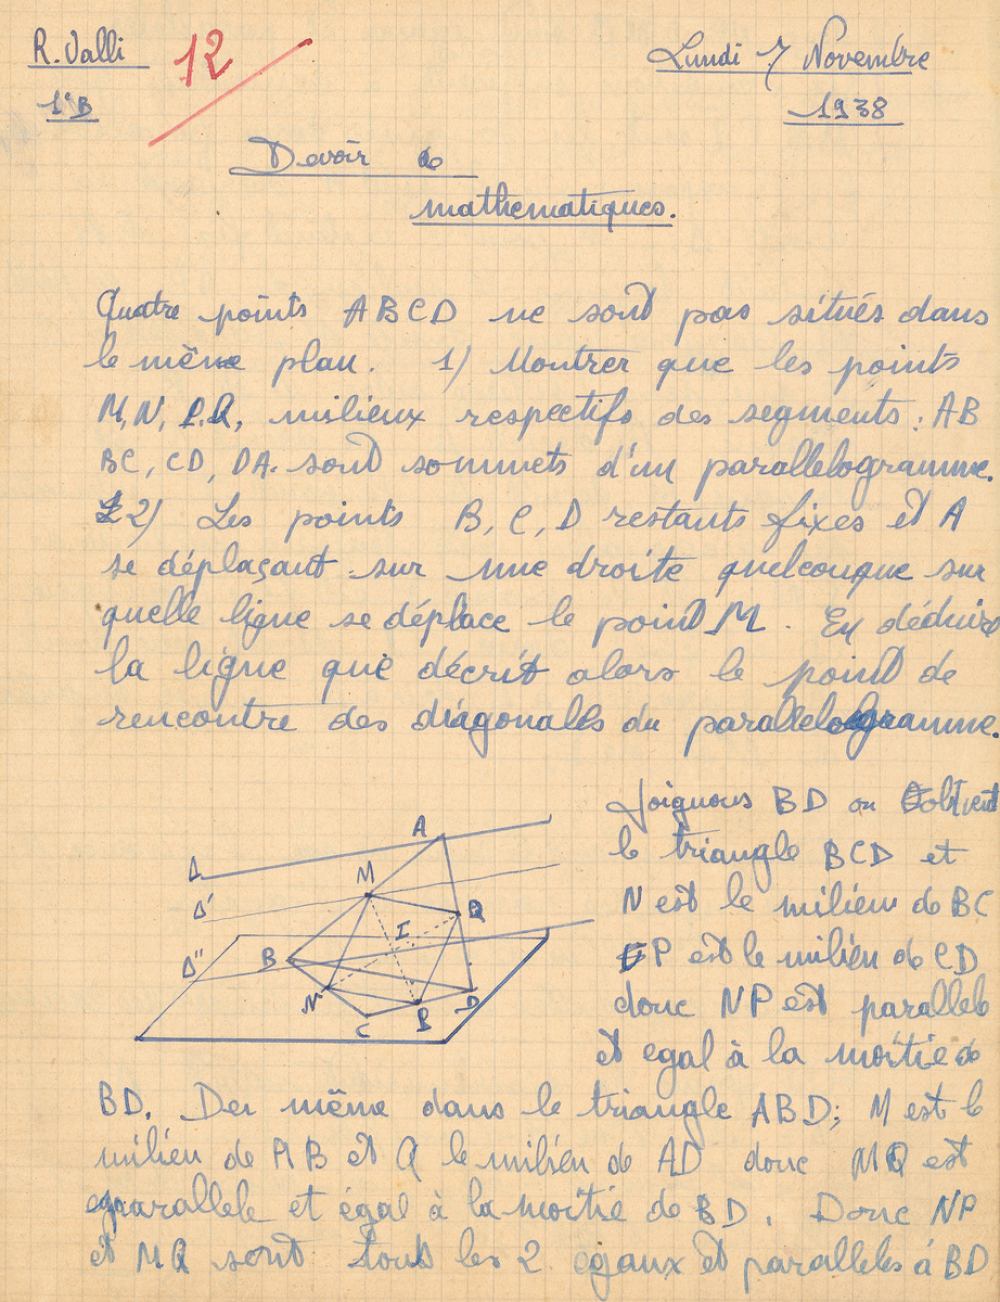 R. Valli
12
Lundi 7 Novembre
1°B
1938
Devoir de
mathematiques.
Quatre points ABCD ne sont pas situés dans
le même plan. 1) Montrer que les points
M, N, P.Q, milieux respectifs des segments : AB
BC, CD, DA. sont sommets d'un parallelogramme.
2) Les points B, C, D restants fixes et A
se déplaçant sur une droite quelconque sur
quelle ligne se déplace le point M. En déduire
la ligne que décrit alors le point de
rencontre des diagonales du parallelogramme.
Joignons BD on obtient
le triangle BCD et
N est le milieu de BC
P est le milieu de CD
donc NP est parallele
et egal à la moitie de
Δ
Δ'
Δ"
A
M
Q
I
B
N
C
P
D
BD. De même dans le triangle ABD; M est le
milieu de AB et Q le milieu de AD donc MQ est
parallele et égal à la moitie de BD. Donc NP
et MQ sont tous les 2 egaux et paralleles á BD